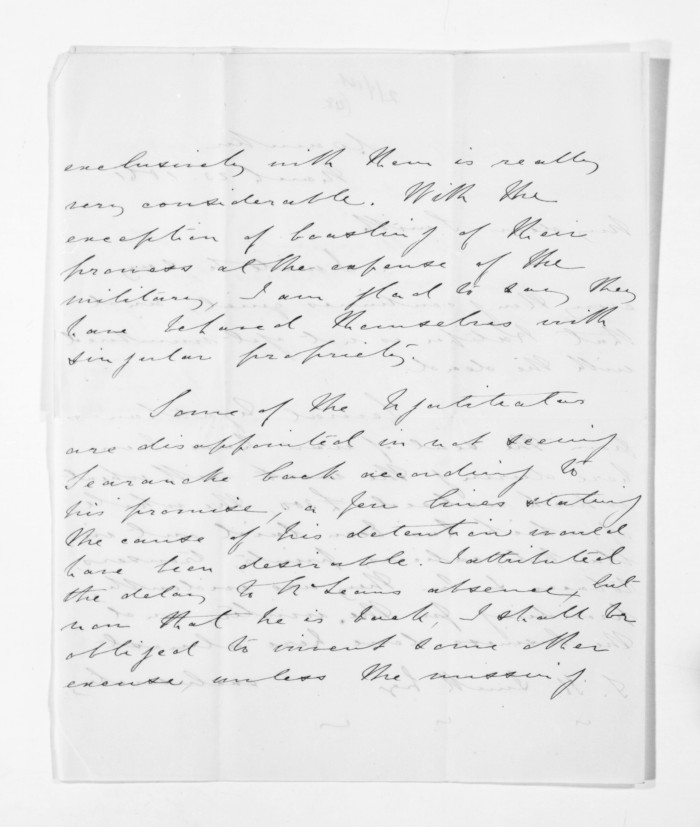 exclusively with them is really
very considerable. With the
exception of boasting of their
prowess at the expense of the
military, I am glad to say they
have behaved themselves with
singular propriety.
Some of the Ngatihaua
are disappointed in not seeing
Searancke back according to
his promise, a few lines stating
the cause of his detention would
have been desirable. I attributed
the delay to McLeans absence, but
now that he is back I shall be
obliged to invent some other
excuse unless the missing